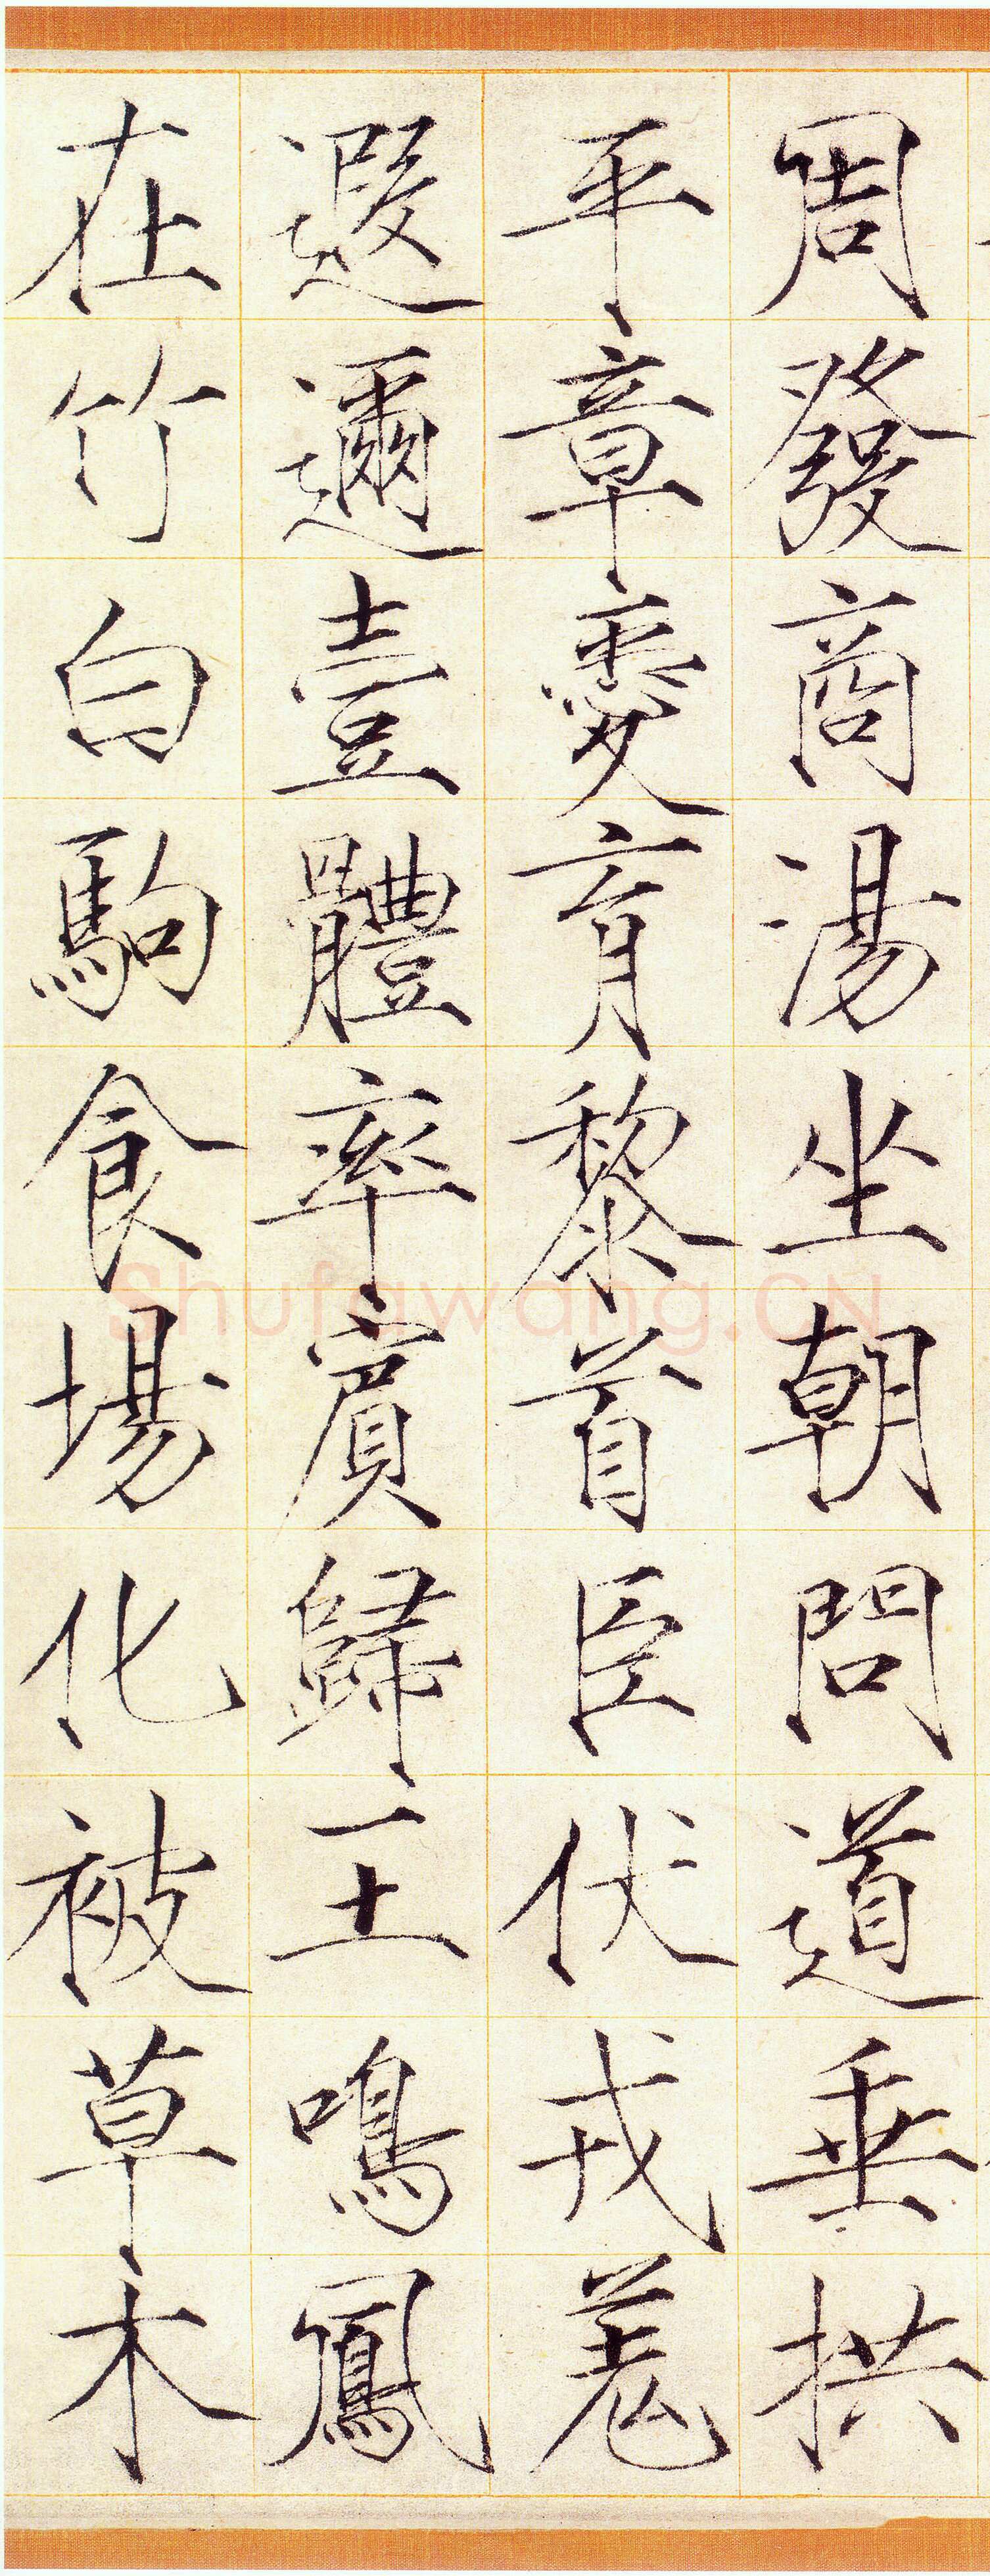 周發商湯坐朝問道垂拱
平章愛育黎首臣伏戎羌
遐邇壹體率賓歸王鳴鳳
在竹白駒食場化被草木
Shufawang.CN